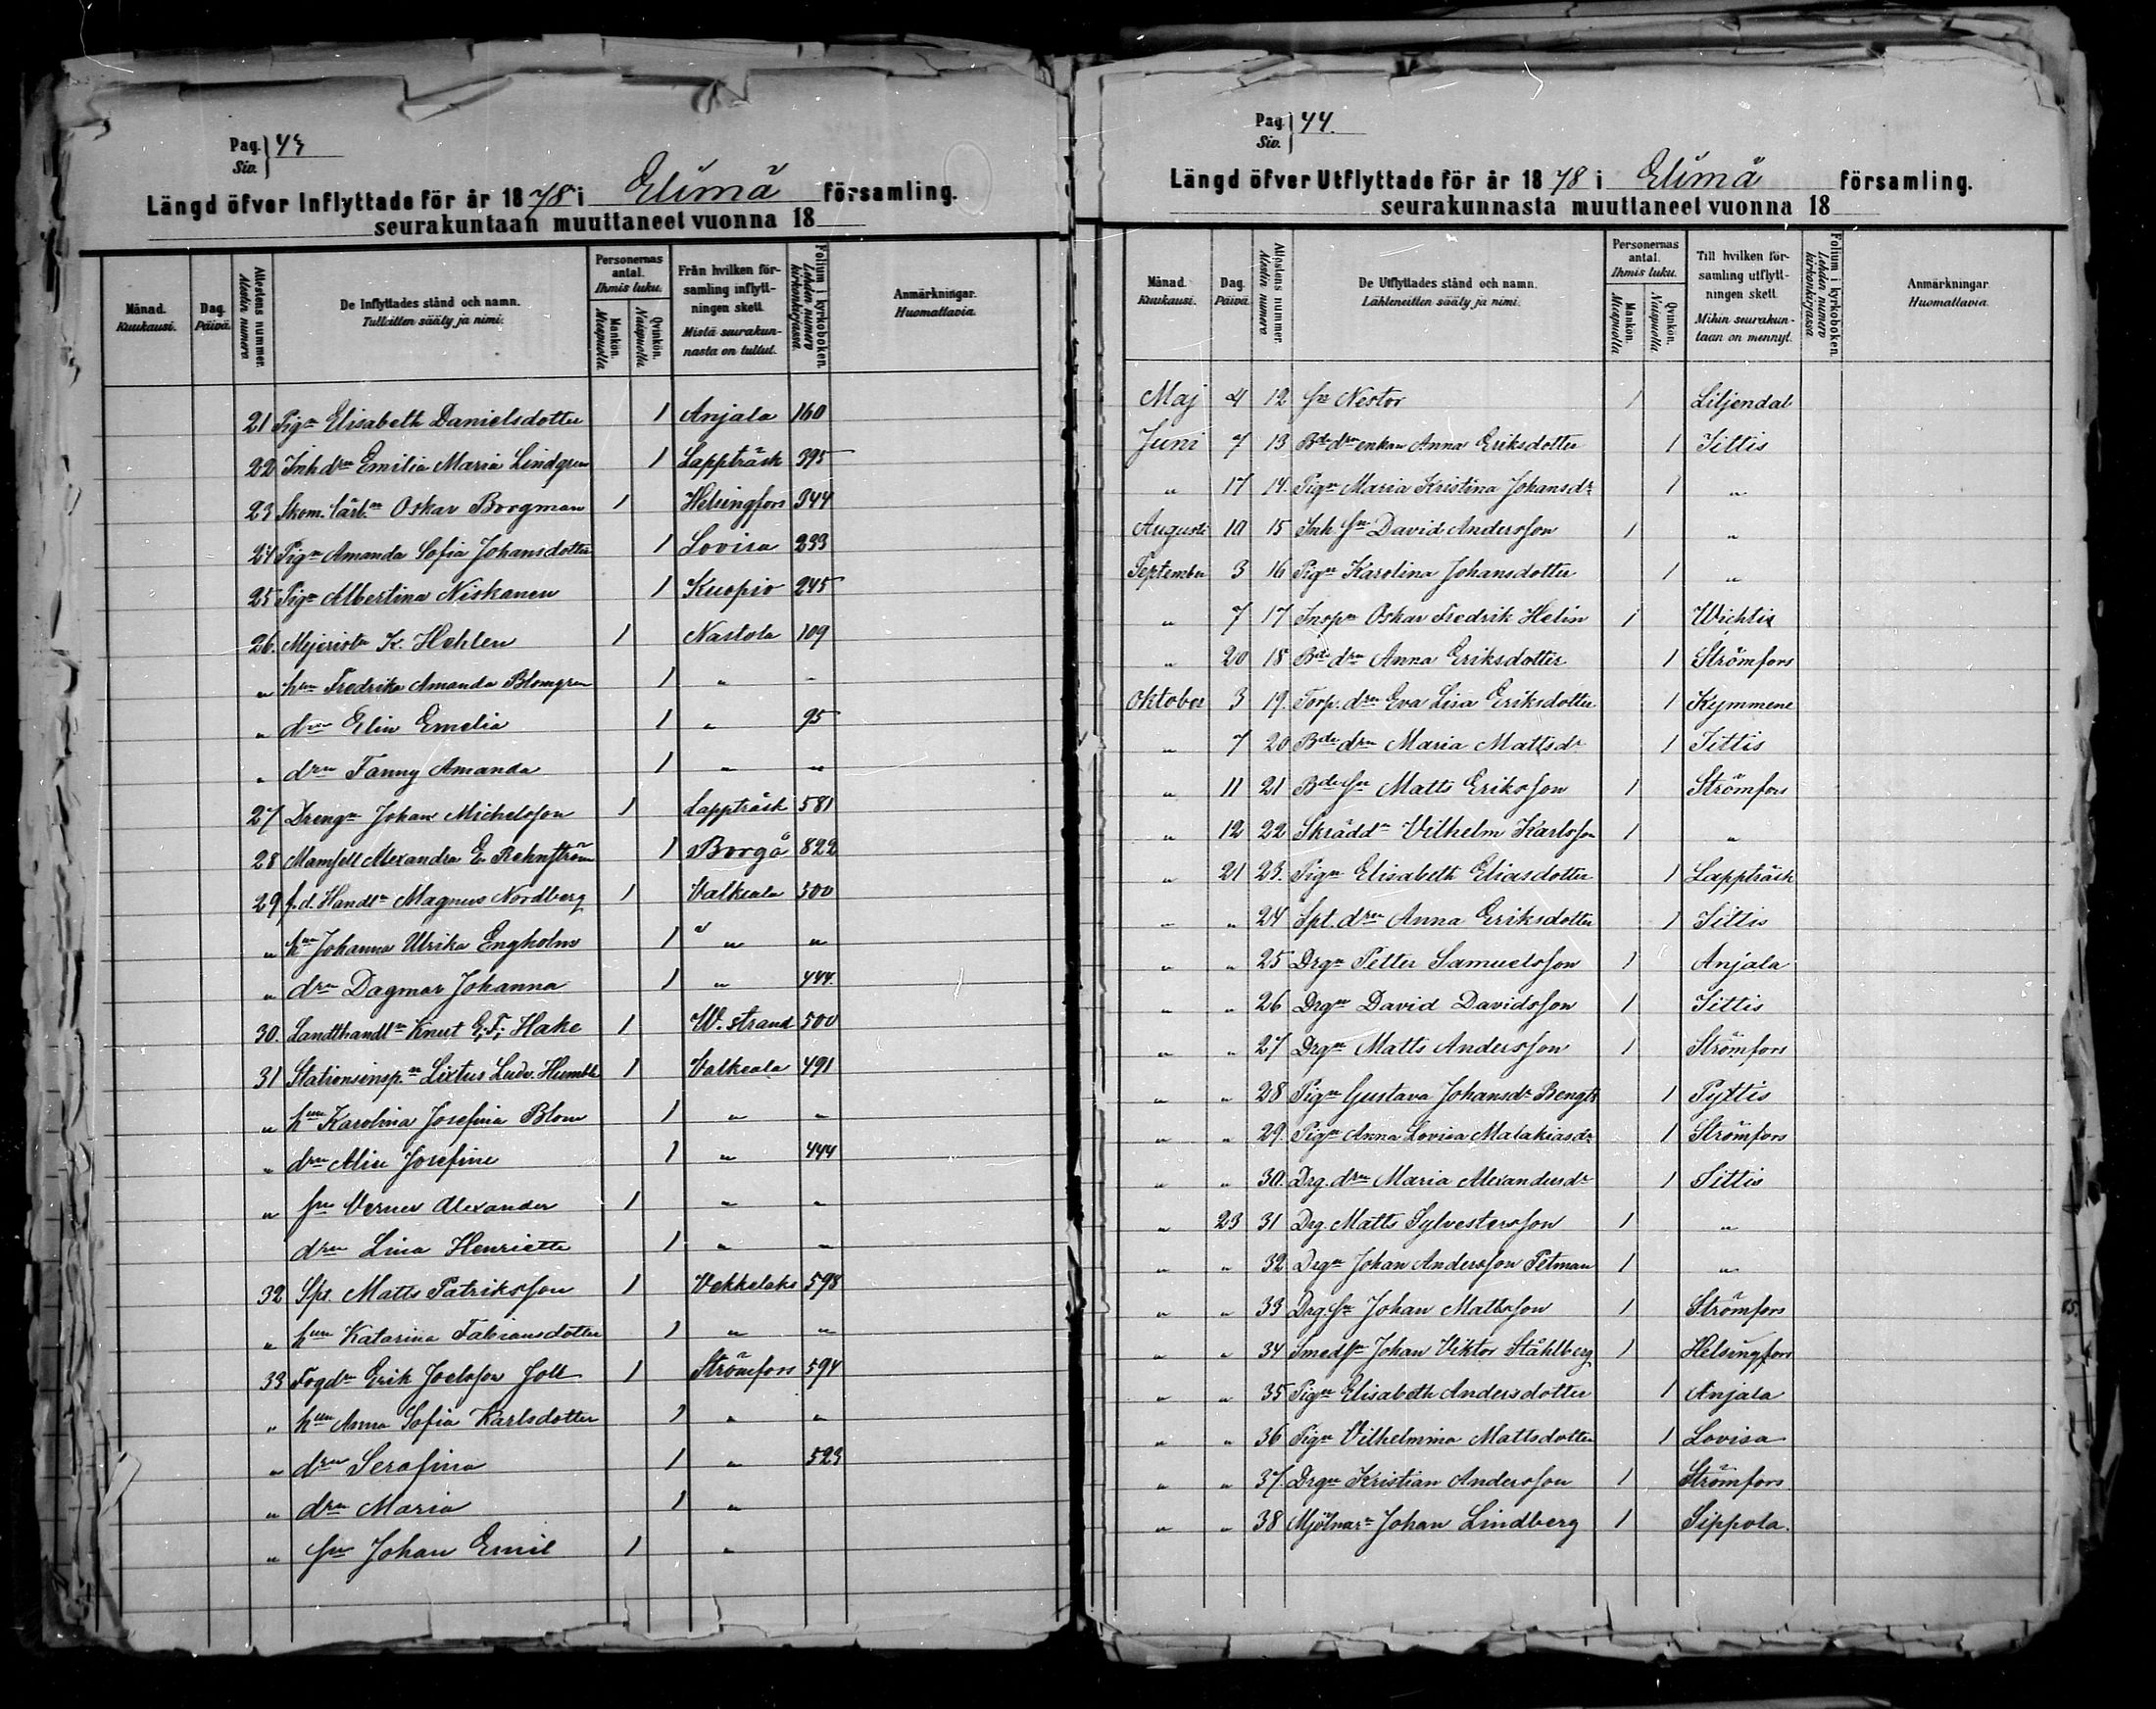 Pag. Siv. 43
Längd öfver Inflyttade för år 1878 i Elimä församling.
seurakuntaan muuttaneet vuonna 18
Månad. Kuukausi. Dag. Päivä. Attestens nummer. Atestin numero De Inflyttades stånd och namn. Tulleitten sääty ja nimi. Personernas antal. Ihmis luku. Mankön. Miespuolia Qvinkön. Naispuolia Från hvilken församling inflyttningen skett. Mistä seurakunnasta on tullut. Folium i kyrkoboken. Lehden numero kirkonkirjassa. Anmärkningar. Huomattavia.
21 Pign Elisabeth Danielsdotter 1 Anjala 160
22 Inh. drn Emilia Maria Lindgren 1 Lappträsk 395
23 Skom. lärl.n Oskar Borgman 1 Helsingfors 344
24 Pign Amanda Sofia Johansdotter 1 Lovisa 233
25 Pign Albertina Niskanen 1 Kuopio 245
26. Mejeristn K. Hohlen 1 Nastola 109
" hun Fredrika Amanda Blomgren 1 " "
" drn Elin Emelia 1 " 95
" drn Fanny Amanda 1 " "
27 Drengn Johan Michelsson 1 Lappträsk 581
28 Mamsell Alexandra E. Rehnström 1 Borgå 822
29 f.d. Handln Magnus Nordberg 1 Valkeala 500
" hun Johanna Ulrika Engholm 1 " "
" drn Dagmar Johanna 1 " 444.
30. Landthandln Knut E. F. Hake 1 W. strand 500
31 Stationsinsp.n Sixtus Ludv. Humble 1 Valkeala 491
" hun Karolina Josefina Blom 1 " "
" drn Alin Josefine 1 " 444
" sn Verner Alexander 1 " "
drn Lina Henriette 1 " "
32 Spt. Matts Patriksson 1 Vekkelaks 598
" hun Katarina Fabiansdotter 1 " "
33 Fogdn Erik Joelsson Joll 1 Strömfors 594
" hun Anna Sofia Karlsdotter 1 " "
" drn Serafina 1 " 523
" drn Maria 1 "
" sn Johan Emil 1 "
Pag. Siv. 44.
Längd öfver Utflyttade för år 1878 i Elimä församling.
seurakunnasta muuttaneet vuonna 18
Månad. Kuukausi. Dag. Päivä. Attestens nummer. Atestin numero De Utflyttades stånd och namn. Lähteneitten sääty ja nimi. Personernas antal. Ihmis luku. Mankön. Miespuolia Qvinkön. Naispuolia Till hvilken församling utflyttningen skett. Mihin seurakuntaan on mennyt. Folium i kyrkoboken. Lehden numero kirkonkirjassa Anmärkningar. Huomattavia.
Maj 4 12 sn Nestor 1 Liljendal
Juni 7 13 Bde drn enkan Anna Eriksdotter 1 Iittis
" 17 14. Pign Maria Kristina Johansdr 1 "
Augusti 10 15 Inh. sn David Andersson 1 "
September 3 16 Pign Karolina Johansdotter 1 "
" 7 17 Inspn Oskar Fredrik Helin 1 Wichtis
" 20 18 Bde drn Anna Eriksdotter 1 Strömfors
Oktober 3 19. Torp. drn Eva Lisa Eriksdotter 1 Kymmene
" 7 20 Bde drn Maria Mattsdr 1 Iittis
" 11 21 Bde sn Matts Eriksson 1 Strömfors
" 12 22 Skräddn Vilhelm Karlsson 1 "
" 21 23. Pign Elisabeth Eliasdotter 1 Lappträsk
" " 24 Spt. drn Anna Eriksdotter 1 Iittis
" " 25 Drgn Petter Samuelsson 1 Anjala
" " 26 Drgn David Davidsson 1 Iittis
" " 27 Drgn Matts Andersson 1 Strömfors
" " 28 Pign Gustava Johansdr Bengts 1 Pyttis
" " 29. Pign Anna Lovisa Malakiasdr 1 Strömfors
" " 30. Drg. drn Maria Alexandersdr 1 Iittis
" 23 31 Drg. Matts Sylvestersson 1 "
" " 32 Drgn Johan Andersson Petman 1 "
" " 33 Drg. sn Johan Mattsson 1 Strömfors
" " 34 Smed sn Johan Viktor Ståhlberg 1 Helsingfors
" " 35 Pign Elisabeth Andersdotter 1 Anjala
" " 36 Pign Vilhelmina Mattsdotter 1 Lovisa
" " 37. Drgn Kristian Andersson 1 Strömfors
" " 38 Mjölnarn Johan Lindberg 1 Sippola.